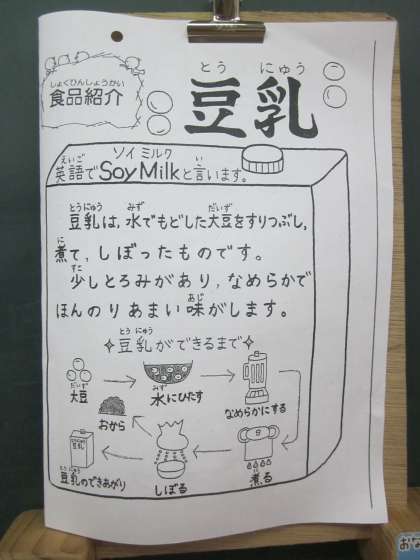 しょくひんしょうかい
食品紹介
とう にゅう
豆乳
えいご ソイ ミルク い
英語でSoy Milkと言います。
とうにゅう みず だいず
豆乳は、水でもどした大豆をすりつぶし、
に
煮て、しぼったものです。
すこ
少しとろみがあり、なめらかで
あじ
ほんのりあまい味がします。
とう にゅう
✧豆乳ができるまで✧
だいず
大豆
みず
水にひたす
なめらかにする
に
煮る
しぼる
おから
とうにゅう
豆乳のできあがり
豆乳